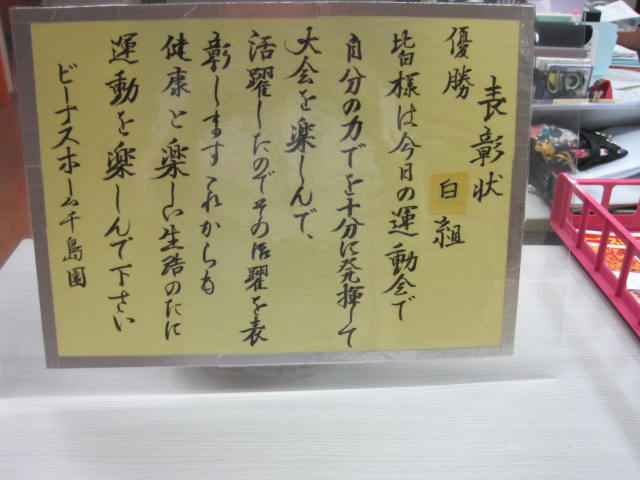 表彰状
優勝 白組
皆様は今日の運動会で
自分の力でを十分に発揮して
大会を楽しんで、
活躍したのでその活躍を表
彰しますこれからも
健康と楽しい生活のたに
運動を楽しんで下さい
ビーナスホーム千島園